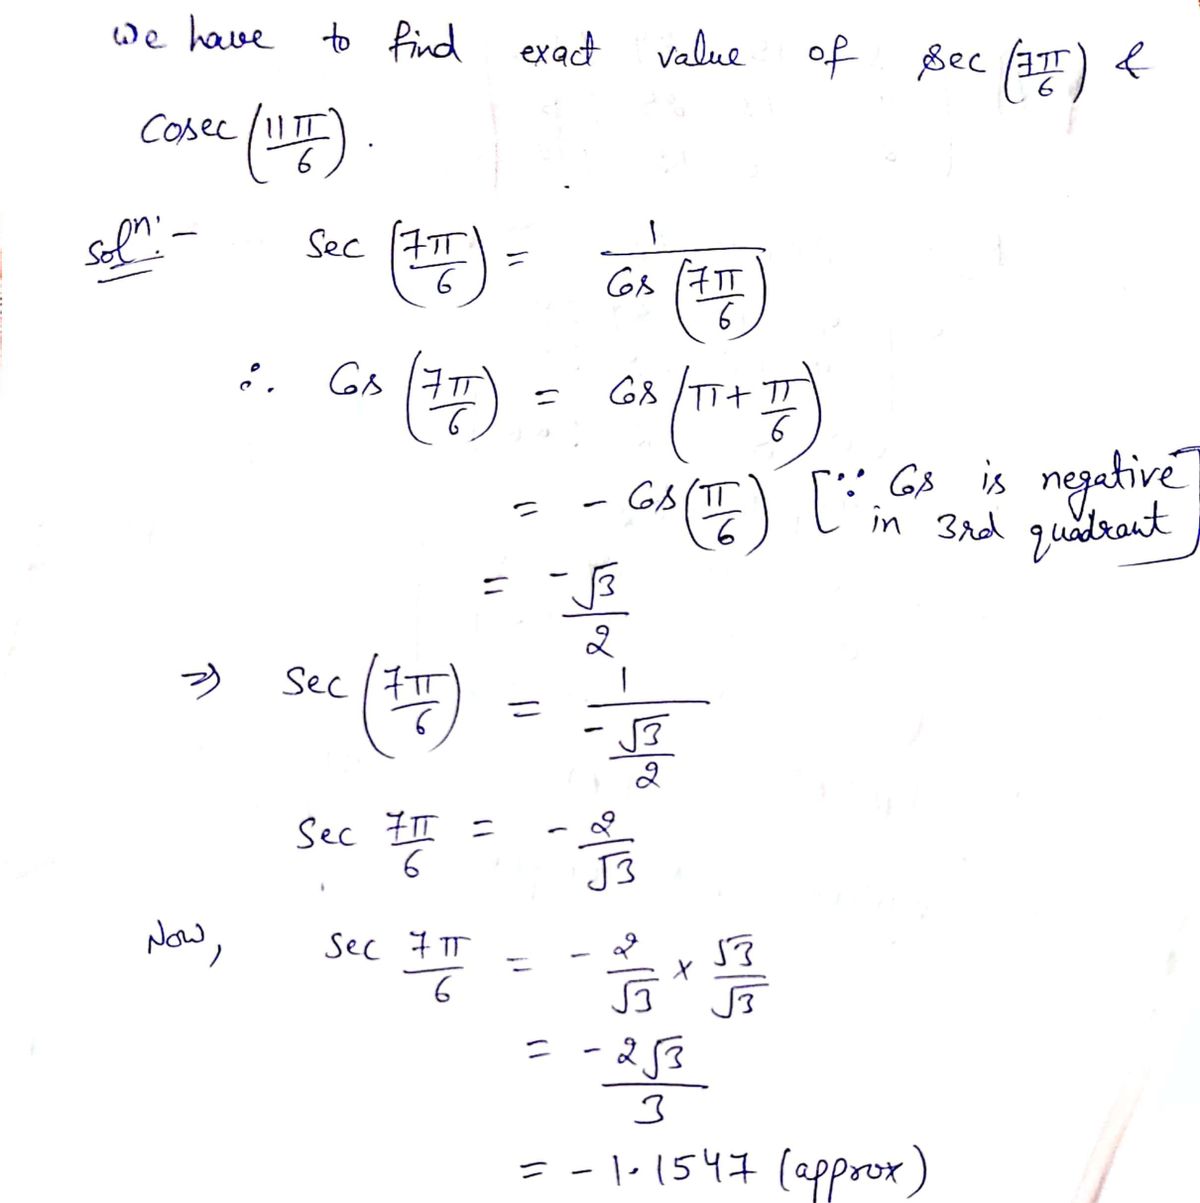 We have to find exact value of sec (7π/6) &
Cosec (11π/6).
solⁿ:- Sec (7π/6) = 1/Cos (7π/6)
∴ Cos (7π/6) = Cos (π + π/6)
= - Cos (π/6) [∵ Cos is negative
in 3rd quadrant]
= -√3/2
⇒ Sec (7π/6) = 1/(-√3/2)
Sec 7π/6 = - 2/√3
Now, Sec 7π/6 = - 2/√3 × √3/√3
= - 2√3/3
= - 1.1547 (approx)